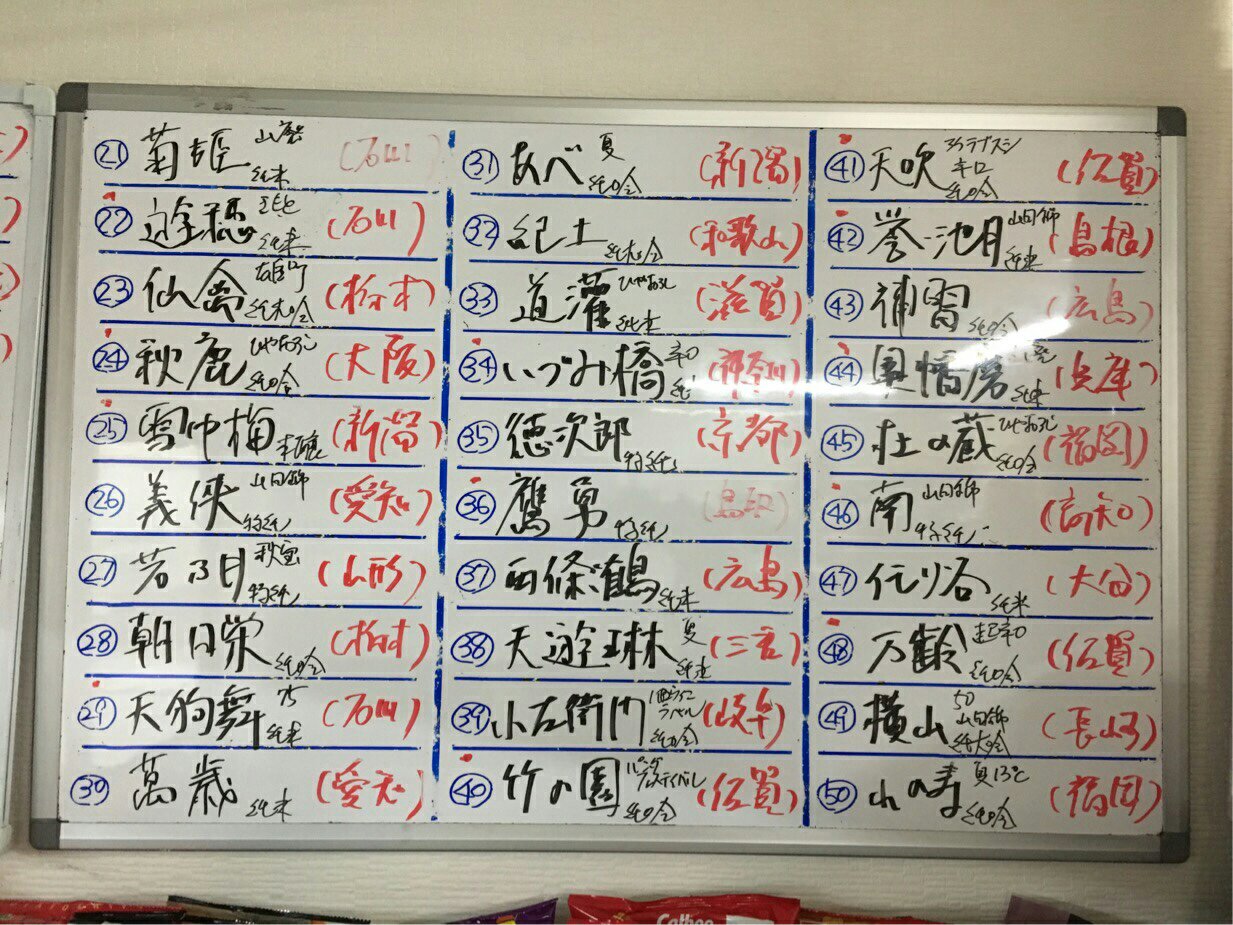 ㉑ 菊姫 山廃 純米 (石川)
㉒ 遊穂 純米 (石川)
㉓ 仙禽 雄町 純米吟 (栃木)
㉔ 秋鹿 ひやおろし 純吟 (大阪)
㉕ 雪中梅 本醸 (新潟)
㉖ 義侠 山田錦 特純 (愛知)
㉗ 若乃月 特純 (山形)
㉘ 朝日栄 純吟 (栃木)
㉙ 天狗舞 75 純米 (石川)
㉚ 萬歳 純米 (愛知)
㉛ あべ 夏 純吟 (新潟)
㉜ 紀土 純大吟 (和歌山)
㉝ 道灌 ひやおろし 純米 (滋賀)
㉞ いづみ橋 辛口 純 (神奈川)
㉟ 徳次郎 特純 (京都)
㊱ 鷹勇 特純 (鳥取)
㊲ 西條鶴 純米 (広島)
㊳ 天遊琳 夏 純米 (三重)
㊴ 小左衛門 ラベル 純吟 (岐阜)
㊵ 竹の園 フェスティバル 純吟 (佐賀)
㊶ 天吹 辛口 純吟 (佐賀)
㊷ 誉池月 山田錦 純米 (島根)
㊸ 純吟 (広島)
㊹ 純米 (兵庫)
㊺ 杜の蔵 ひやおろし 純吟 (福岡)
㊻ 南 山田錦 特純 (高知)
㊼ 純米 (大分)
㊽ 万齢 超辛口 純吟 (佐賀)
㊾ 横山 50 山田錦 純大吟 (長崎)
㊿ 山の寿 夏13℃ 純吟 (福岡)